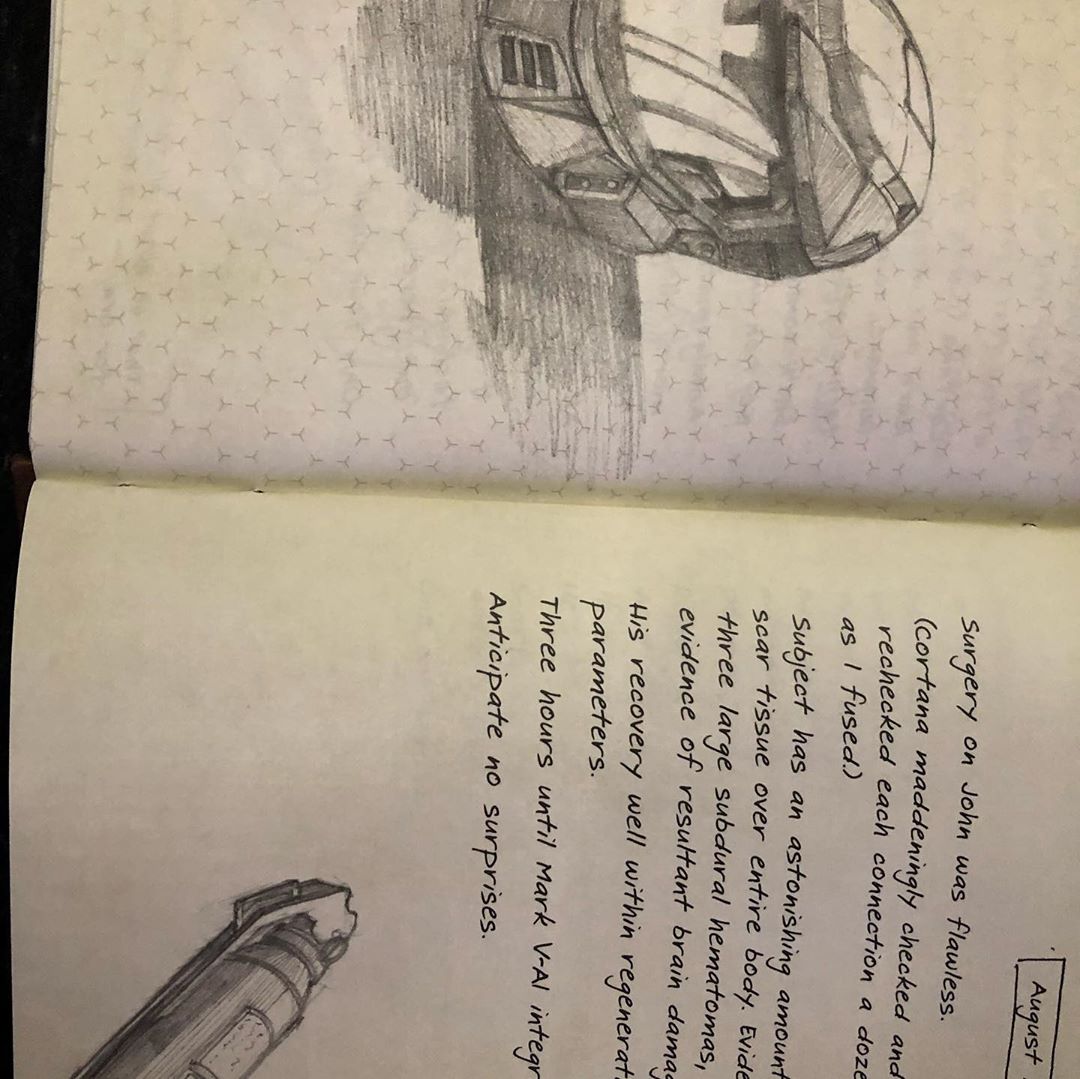 August
Surgery on John was flawless.
(Cortana maddeningly checked and
rechecked each connection a doze
as I fused.)
Subject has an astonishing amount
scar tissue over entire body. Evide
three large subdural hematomas,
evidence of resultant brain damag
His recovery well within regenerat
parameters.
Three hours until Mark V-AI integr
Anticipate no surprises.